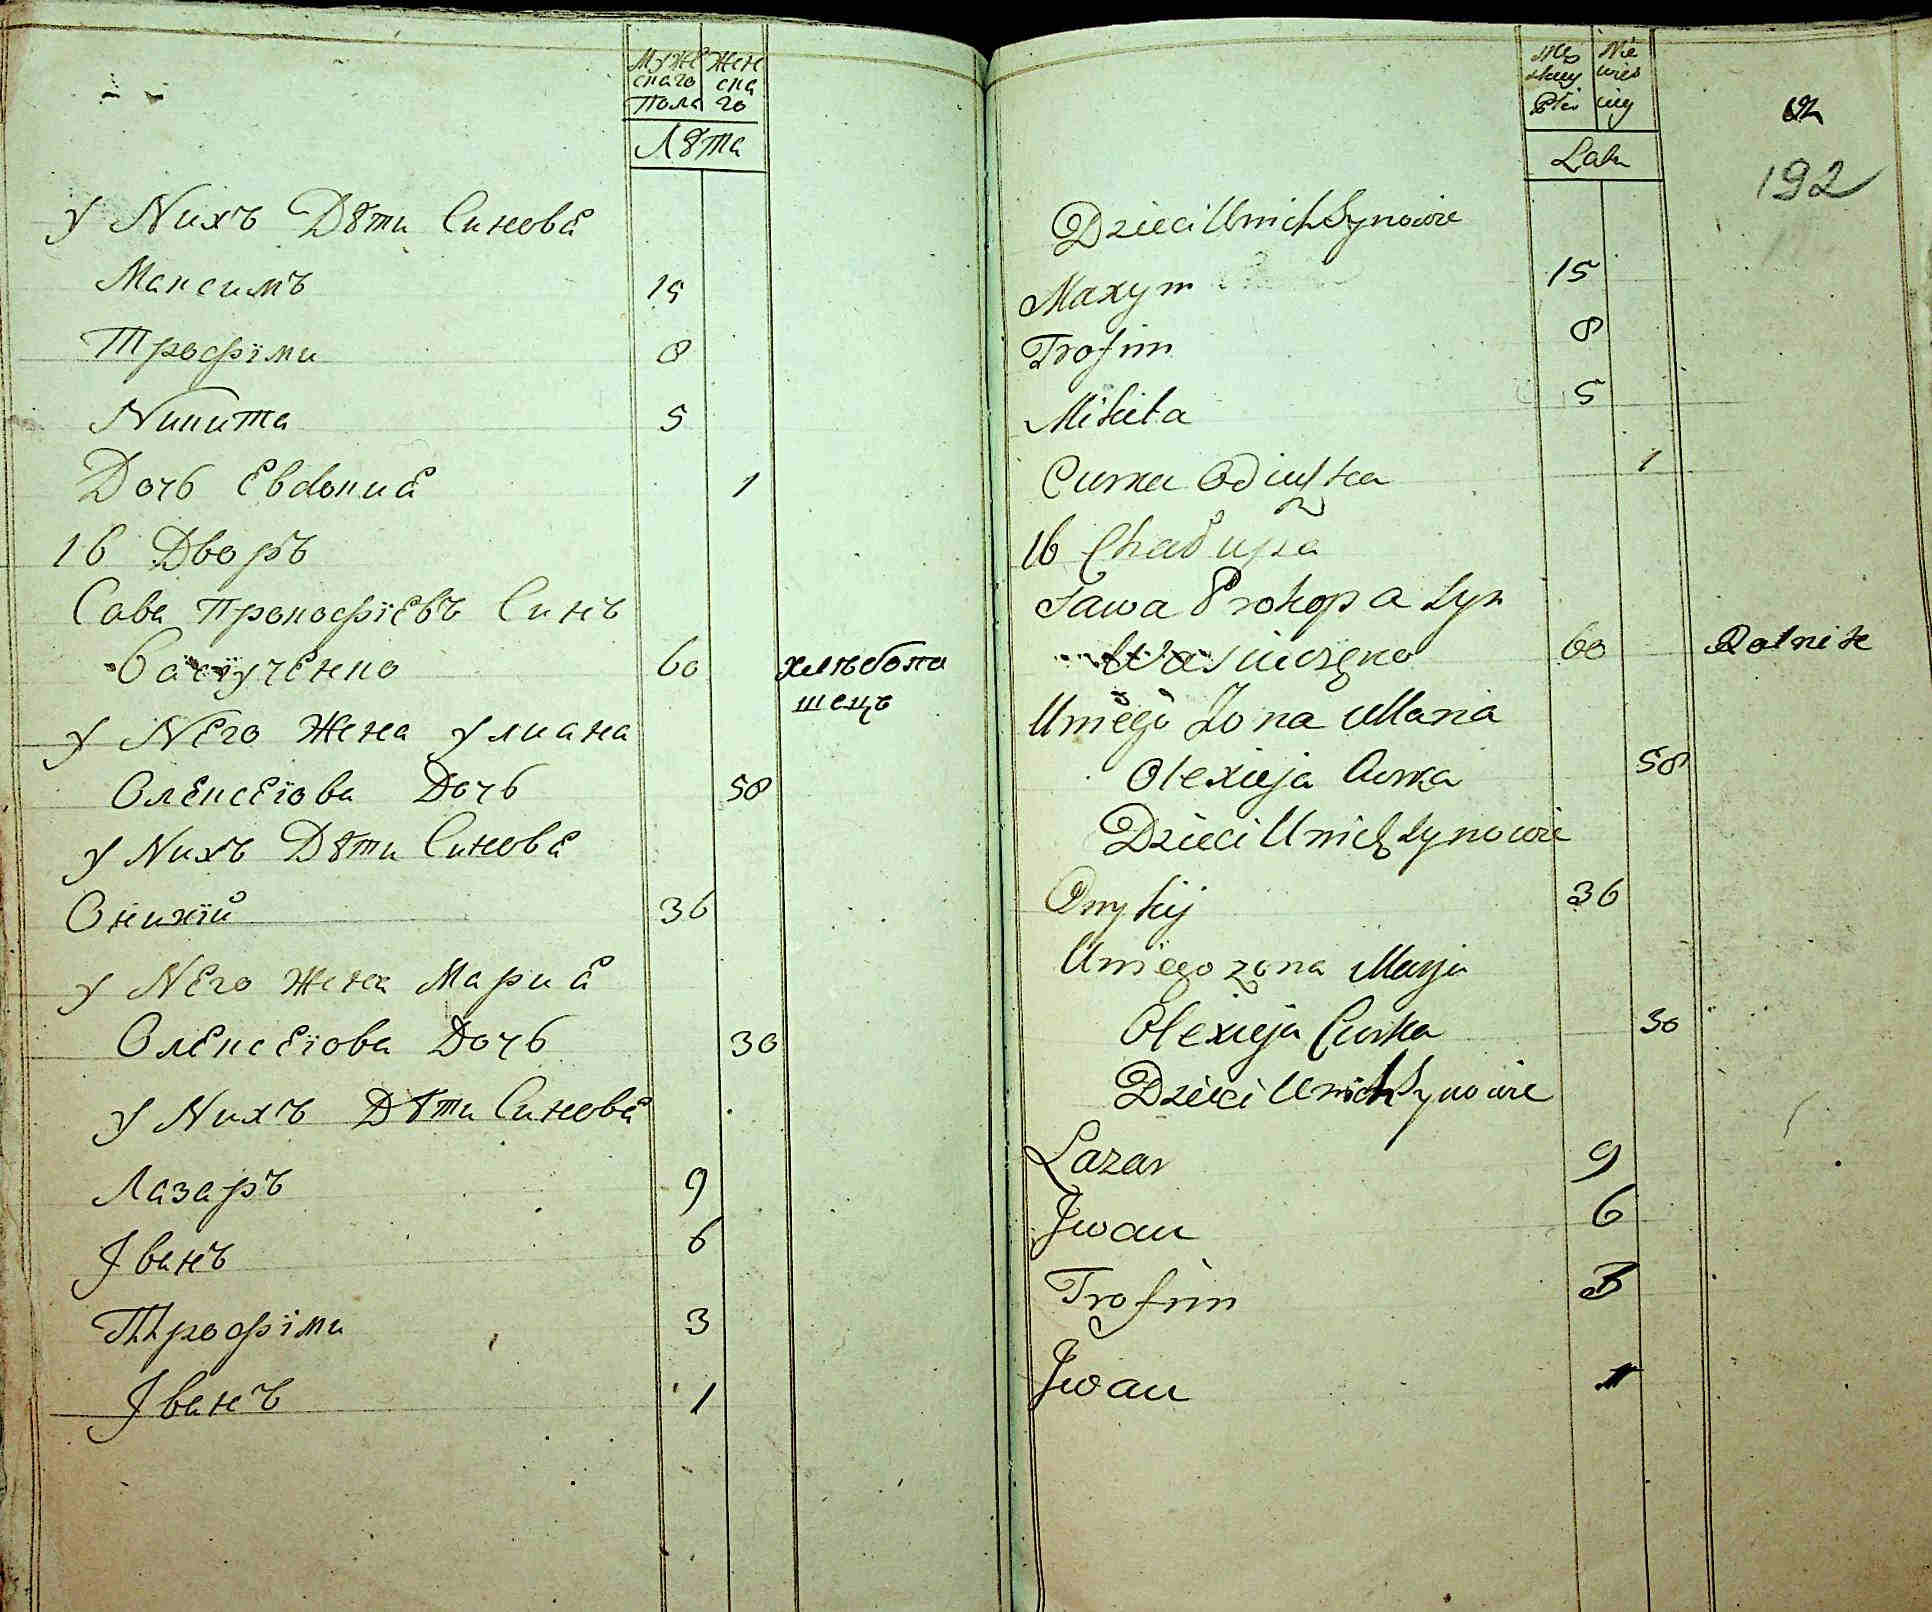 Муже Жен
скаго ска
Пола го
Лѣта
у Нихъ Дѣти Синовя
Максимъ 15
Трофїми 8
Никита 5
Дочь Евдокия 1
16 Дворъ
Сава Прокофїевъ Синъ
Васїученко 60 хлѣбопа
шецъ
у Него Жена улиана
Олексеїова Дочь 58
у Нихъ Дѣти Синовя
Оникїй 36
у Него Жена Мария
Олексеїова Дочь 30
у Нихъ Дѣти Синовя
Лазаръ 9
Іванъ 6
Трофїми 3
Іванъ 1
Męs Nie
skiey wies
Płci ciey
Latu
192
Dzieci U nich Synowie
Maxym 15
Trofim 8
Mikita 5
Curka 1
16 Chałupa
Sawa Prokopa Syn
Wasiuczęko 60 Rolnik
U niego Żona Maria
Olexieja Curka 58
Dzieci U nich Synowie
Onykij 36
U niego żona Marja
Olexieja Curka 30
Dzieci U nich Synowie
Lazar 9
Jwan 6
Trofim 3
Jwan 1